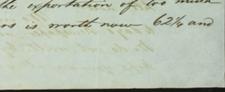 the exportation of too much
ors is worth now 62½ and